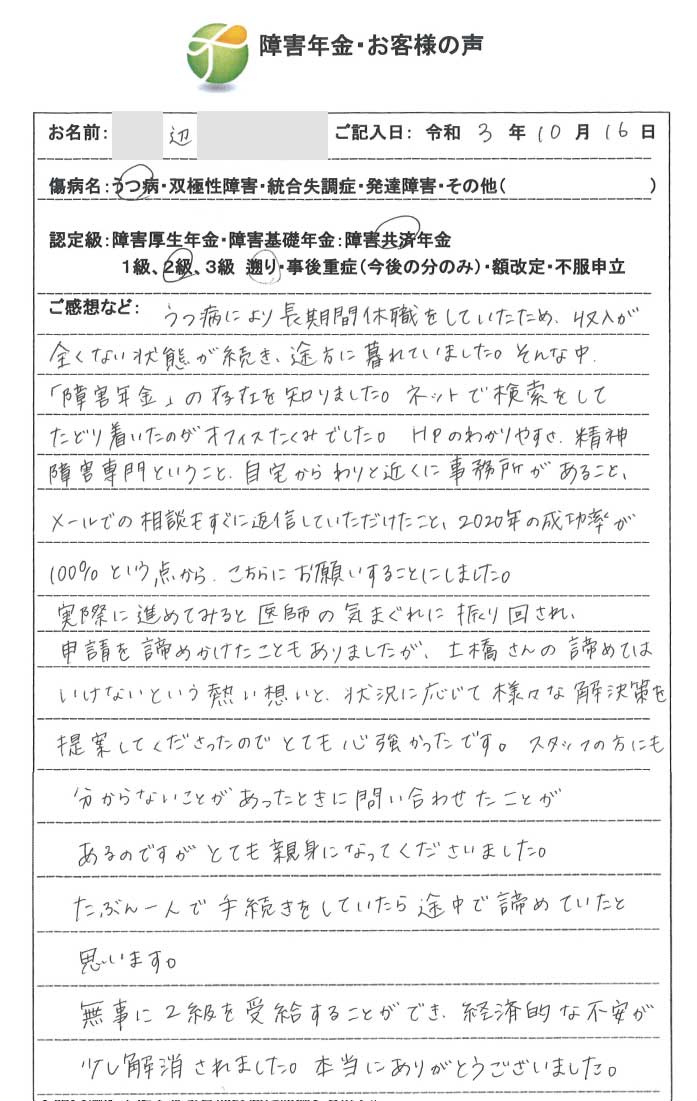 障害年金・お客様の声
お名前: 辺 ご記入日: 令和 3 年 10 月 16 日
傷病名:うつ病・双極性障害・統合失調症・発達障害・その他( )
認定級:障害厚生年金・障害基礎年金:障害共済年金
1級、2級、3級 遡り・事後重症(今後の分のみ)・額改定・不服申立
ご感想など: うつ病により長期間休職をしていたため、収入が
全くない状態が続き、途方に暮れていました。そんな中、
「障害年金」の存在を知りました。ネットで検索をして
たどり着いたのがオフィスたくみでした。HPのわかりやすさ、精神
障害専門ということ、自宅からわりと近くに事務所があること、
メールでの相談もすぐに返信していただけたこと、2020年の成功率が
100%という点から、こちらにお願いすることにしました。
実際に進めてみると医師の気まぐれに振り回され、
申請を諦めかけたこともありましたが、土橋さんの諦めては
いけないという熱い想いと、状況に応じて様々な解決策を
提案してくださったのでとても心強かったです。スタッフの方にも
分からないことがあったときに問い合わせたことが
あるのですがとても親身になってくださいました。
たぶん一人で手続きをしていたら途中で諦めていたと
思います。
無事に2級を受給することができ、経済的な不安が
少し解消されました。本当にありがとうございました。